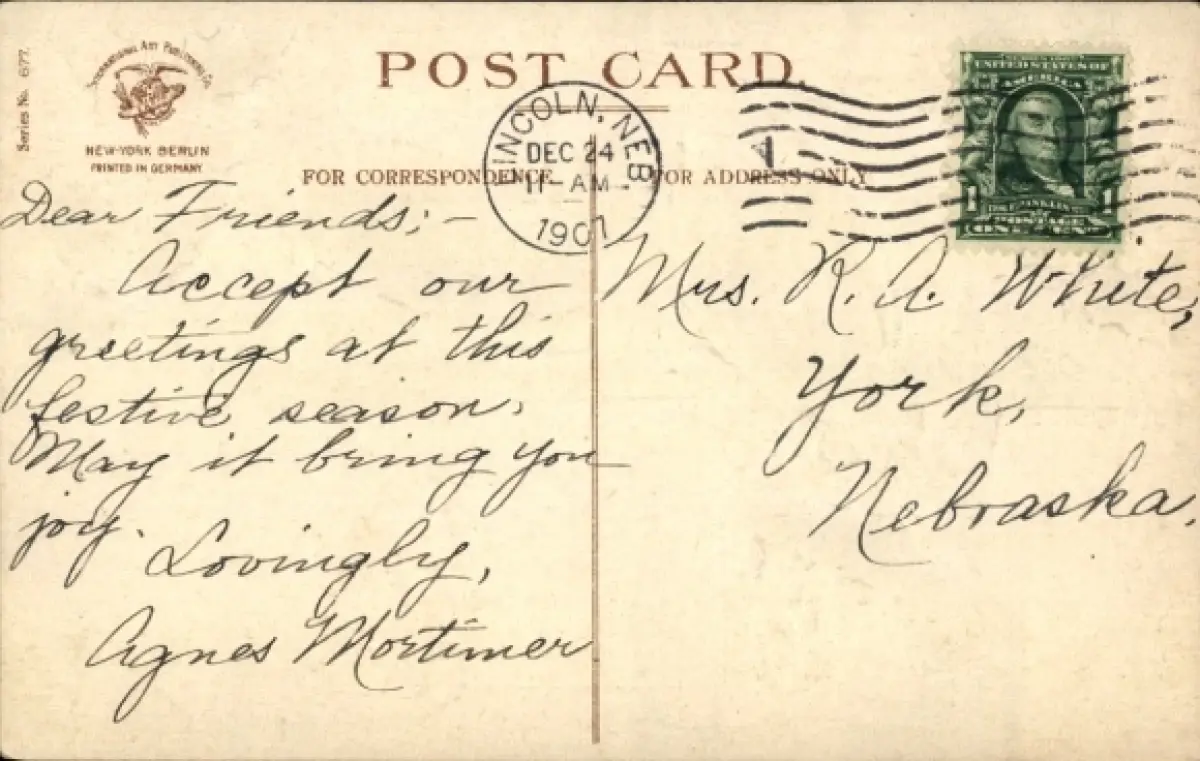 Series No. 677.
INTERNATIONAL ART PUBLISHING CO.
NEW-YORK BERLIN
PRINTED IN GERMANY
POST CARD.
LINCOLN, NEB
DEC 24
11-AM
1907
1
FOR CORRESPONDENCE
FOR ADDRESS ONLY
UNITED STATES OF
AMERICA
1 1
POSTAGE
ONE CENT
Dear Friends; —
Accept our
greetings at this
festive season.
May it bring you
joy.
Lovingly,
Agnes Mortimer
Mrs. R. A. White,
York,
Nebraska.